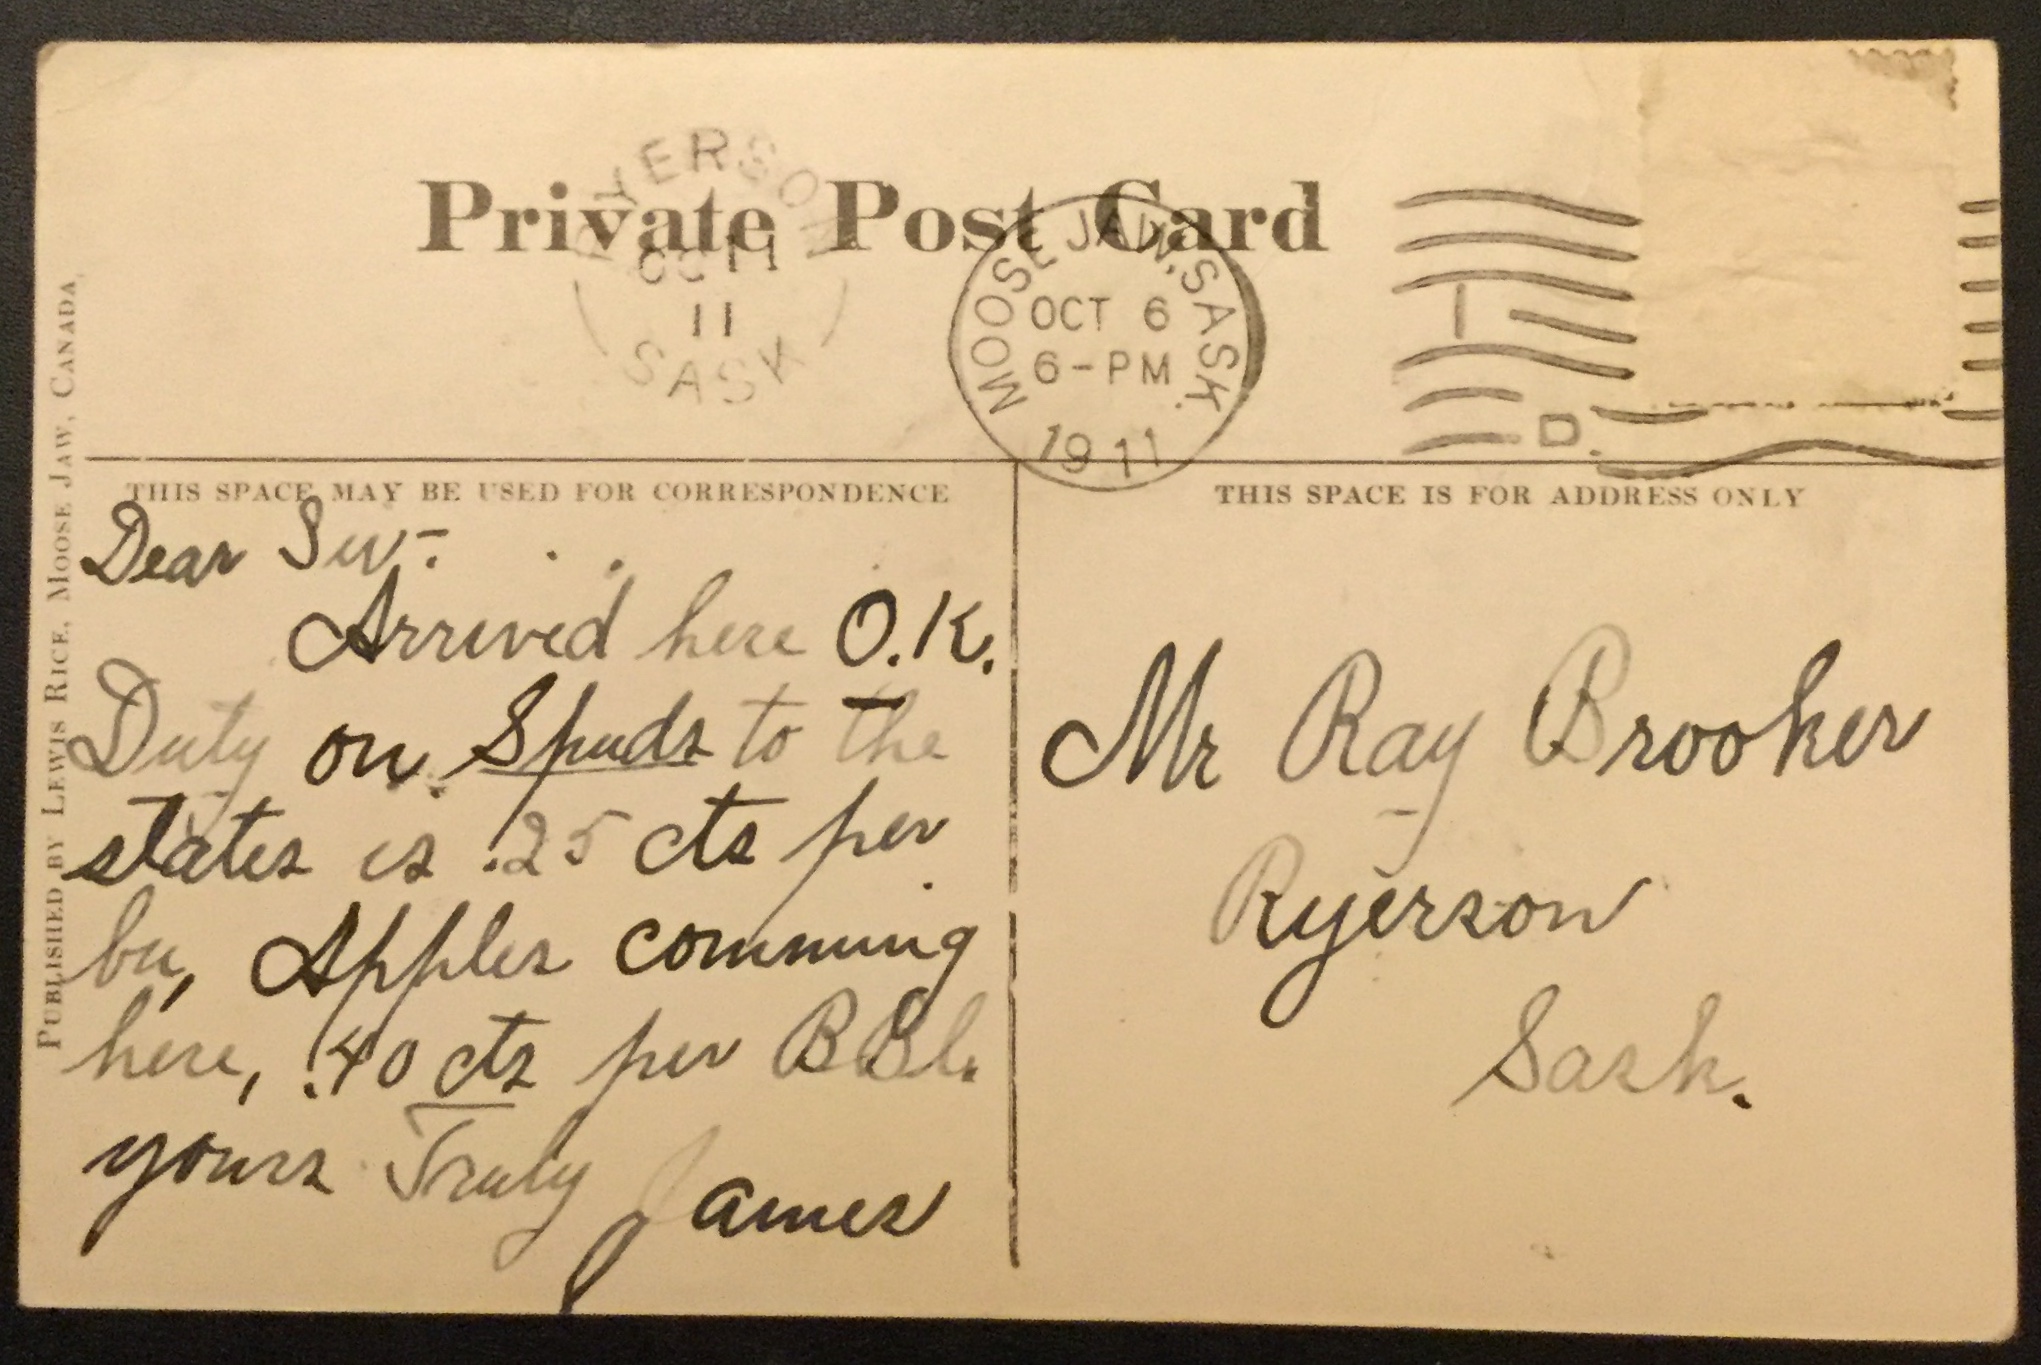 Private Post Card
RYERSON
OC 11
11
SASK
MOOSE JAW, SASK.
OCT 6
6-PM
1911
I
D.
PUBLISHED BY LEWIS RICE, MOOSE JAW, CANADA.
THIS SPACE MAY BE USED FOR CORRESPONDENCE
Dear Sir:-
Arrived here O.K.
Duty on Spuds to the
states is .25 cts per
bu, Apples comming
here, .40 cts per BBl.
yours Truly James
THIS SPACE IS FOR ADDRESS ONLY
Mr Ray Brooker
Ryerson
Sask.